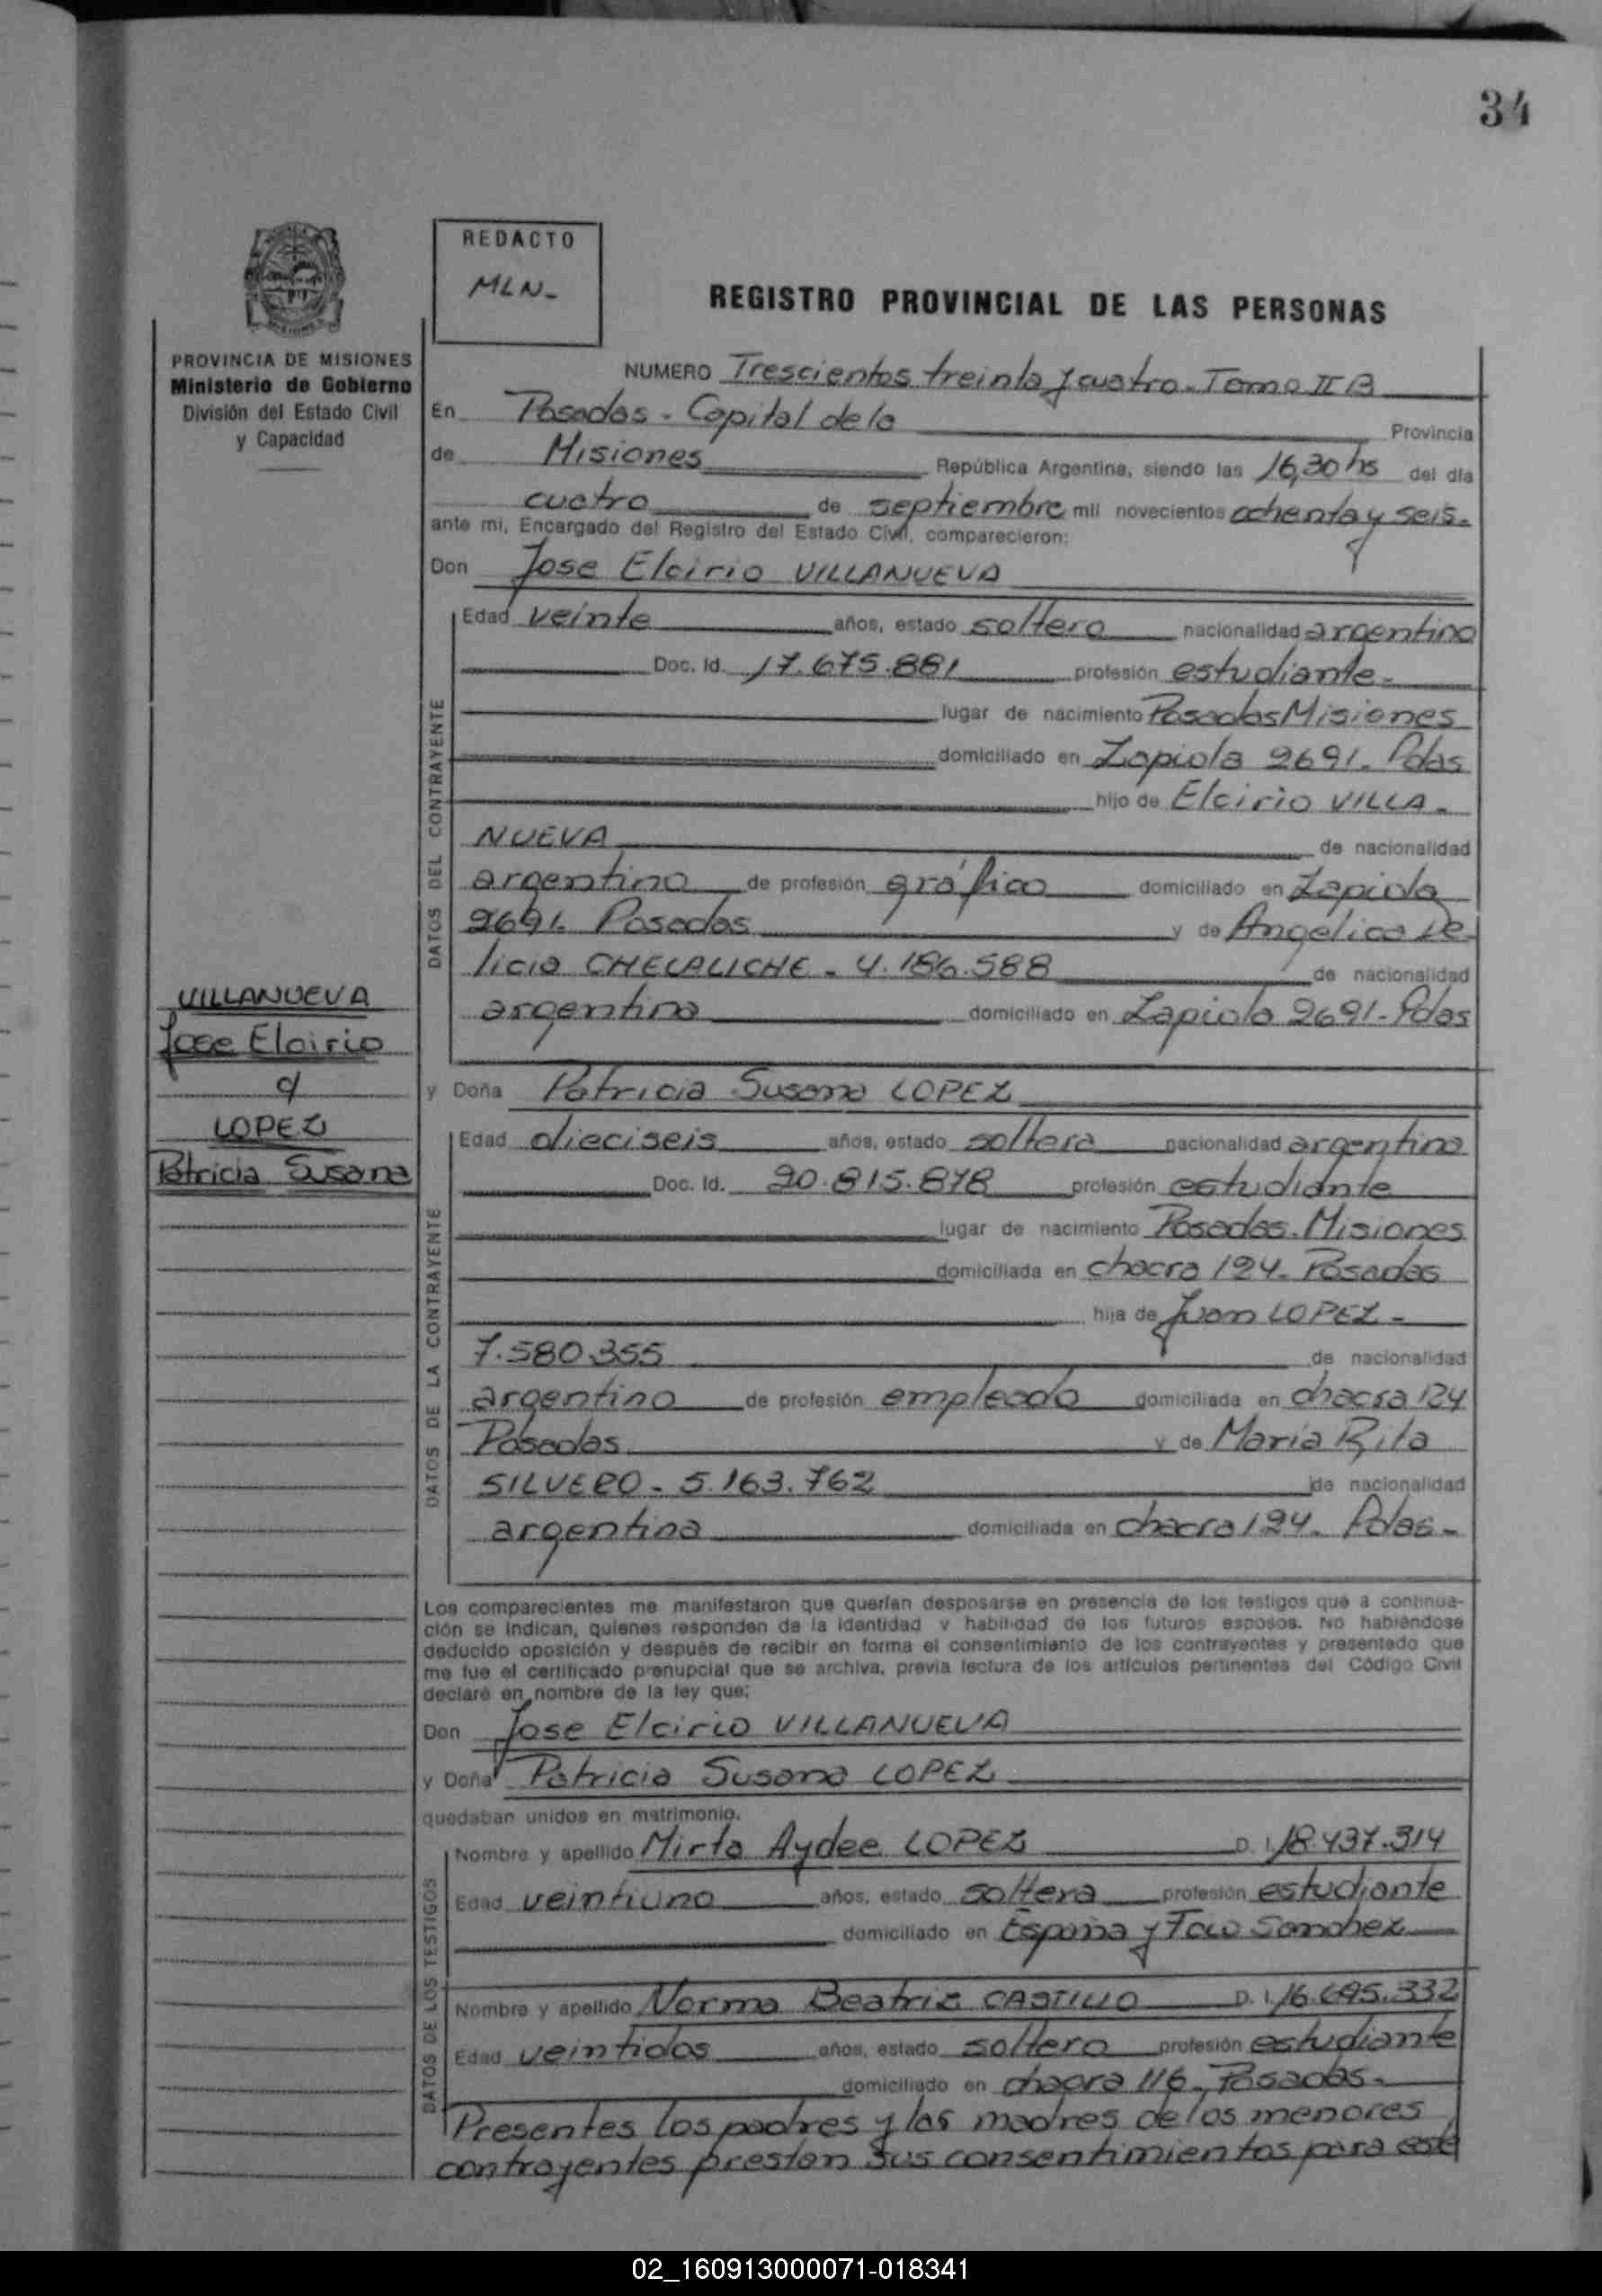 34
REDACTO
MLN-
REGISTRO PROVINCIAL DE LAS PERSONAS
PROVINCIA DE MISIONES
Ministerio de Gobierno
División del Estado Civil
y Capacidad
NUMERO Trescientos treinta y cuatro. Tomo II B
En Posadas - Capital de la Provincia
de Misiones República Argentina, siendo las 16,30 hs del día
cuatro de septiembre mil novecientos ochenta y seis.
ante mi, Encargado del Registro del Estado Civil, comparecieron:
Don Jose Elcirio VILLANUEVA
DATOS DEL CONTRAYENTE
Edad veinte años, estado soltero nacionalidad argentino
Doc. Id. 17.675.881 profesión estudiante-
lugar de nacimiento Posadas Misiones
domiciliado en Lapiola 2691. Pdas
hijo de Elcirio VILLA-
NUEVA de nacionalidad
argentino de profesión gráfico domiciliado en Lapiola
2691. Posadas y de Angelica De-
licia CHECALICHE - 4.186.588 de nacionalidad
argentina domiciliado en Lapiola 2691-Pdas
VILLANUEVA
Jose Elcirio
c/
LOPEZ
Patricia Susana
y Doña Patricia Susana LOPEZ
DATOS DE LA CONTRAYENTE
Edad dieciseis años, estado soltera nacionalidad argentina
Doc. Id. 20.815.878 profesión estudiante
lugar de nacimiento Posadas. Misiones
domiciliada en chacra 124- Posadas
hija de Juan LOPEZ -
7.580.355 de nacionalidad
argentino de profesión empleado domiciliada en chacra 124
Posadas y de Maria Rita
SILVERO - 5.163.762 de nacionalidad
argentina domiciliada en chacra 124. Pdas-
Los comparecientes me manifestaron que querían desposarse en presencia de los testigos que a continua-
ción se indican, quienes responden de la identidad y habilidad de los futuros esposos. No habiéndose
deducido oposición y después de recibir en forma el consentimiento de los contrayentes y presentado que
me fue el certificado prenupcial que se archiva, previa lectura de los artículos pertinentes del Código Civil
declaré en nombre de la ley que:
Don Jose Elcirio VILLANUEVA
y Doña Patricia Susana LOPEZ
quedaban unidos en matrimonio.
DATOS DE LOS TESTIGOS
Nombre y apellido Mirta Aydee LOPEZ D. I. 18.437.314
Edad veintiuno años, estado soltera profesión estudiante
domiciliado en España y Fco Sanchez
Nombre y apellido Norma Beatriz CASTILLO D. I. 16.695.332
Edad veintidos años, estado soltera profesión estudiante
domiciliado en chacra 116. Posadas.
Presentes los padres y las madres de los menores
contrayentes prestan sus consentimientos para este
02_160913000071-018341